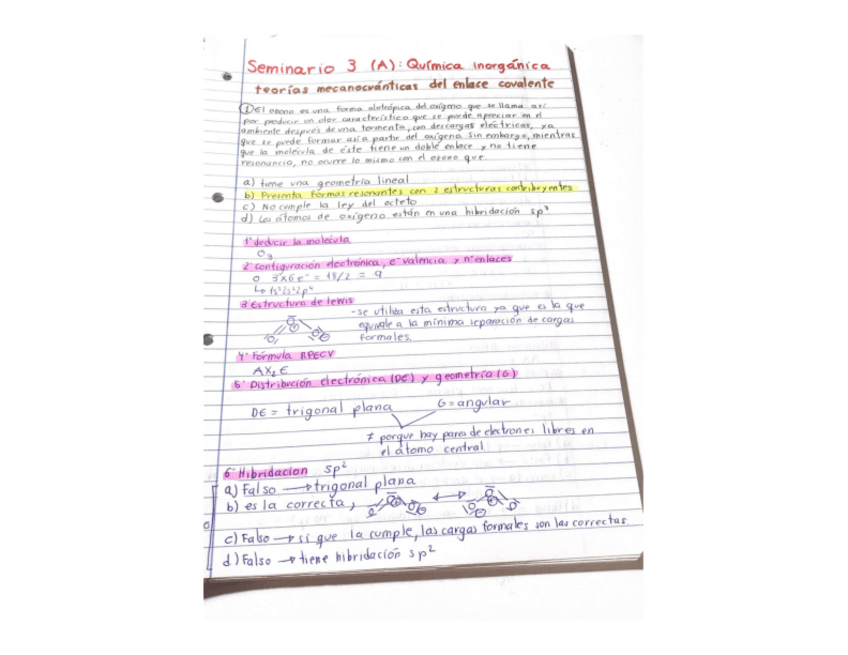 Seminario 3 (A): Química inorgánica
teorías mecanocuánticas del enlace covalente
① El ozono es una forma alotrópica del oxígeno que se llama así
por producir un olor característico que se puede apreciar en el
ambiente después de una tormenta, con descargas eléctricas, ya
que se puede formar así a partir del oxígeno. Sin embargo, mientras
que la molécula de éste tiene un doble enlace y no tiene
resonancia, no ocurre lo mismo con el ozono que:
a) tiene una geometría lineal
b) Presenta formas resonantes con 2 estructuras contribuyentes
c) No cumple la ley del octeto
d) Los átomos de oxígeno están en una hibridación sp³
1º deducir la molécula
O₃
2º configuración electrónica, e⁻ valencia y nº enlaces
O 3x6e⁻ = 18/2 = 9
↳ 1s²2s²2p⁴
3º Estructura de lewis
- se utiliza esta estructura ya que es la que
equivale a la mínima separación de cargas
formales.
4º Fórmula RPECV
AX₂E
5º Distribución electrónica (DE) y geometría (G)
DE = trigonal plana G = angular
≠ porque hay pares de electrones libres en
el átomo central
6º Hibridacion sp²
a) Falso → trigonal plana
b) es la correcta,
c) Falso → sí que la cumple, las cargas formales son las correctas
d) Falso → tiene hibridación sp²